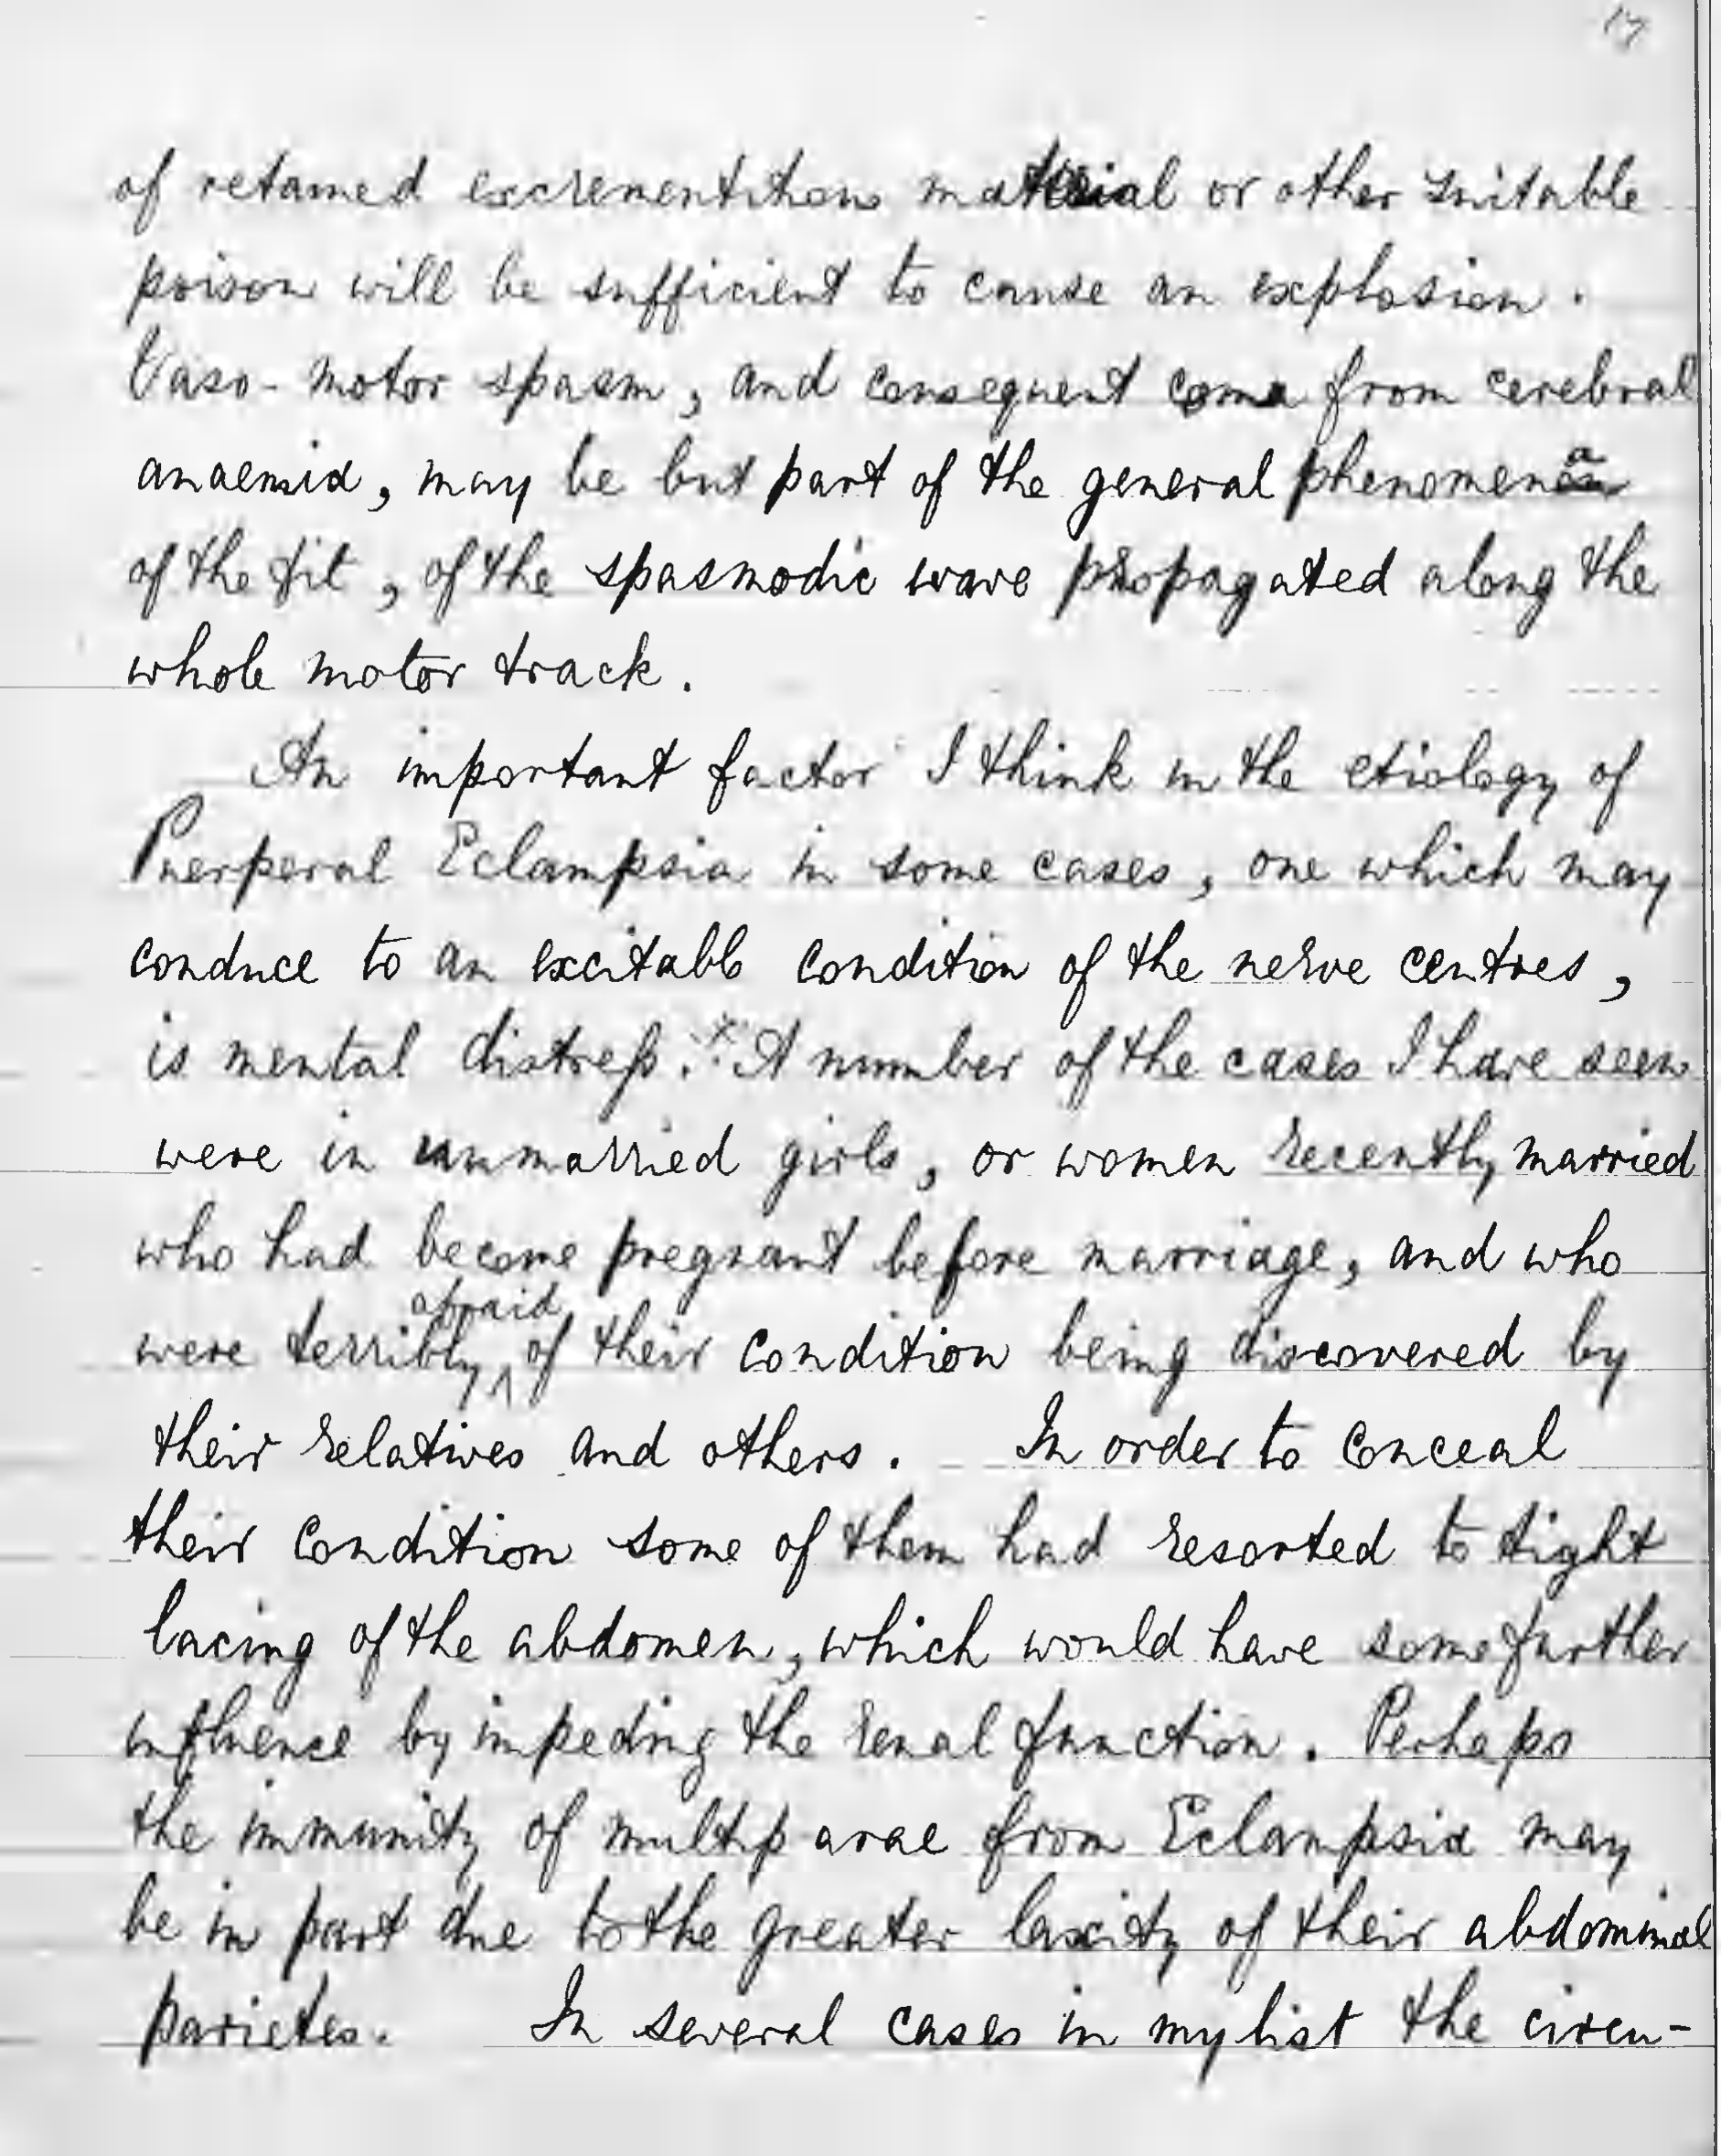 17
of retained excrementitious material or other suitable
poison will be sufficient to cause an explosion.
Vaso-motor spasm, and consequent coma from cerebral
anaemia, may be but part of the general phenomena
of the fit, of the spasmodic wave propagated along the
whole motor track.
An important factor I think in the etiology of
Puerperal Eclampsia in some cases, one which may
conduce to an excitable condition of the nerve centres,
is mental distress.* A number of the cases I have seen
were in unmarried girls, or women recently married
who had become pregnant before marriage, and who
were terribly afraid of their condition being discovered by
their relatives and others. In order to conceal
their condition some of them had resorted to tight
lacing of the abdomen, which would have some further
influence by impeding the renal function. Perhaps
the immunity of multiparae from Eclampsia may
be in part due to the greater laxity of their abdominal
parietes. In several cases in my list the circu-